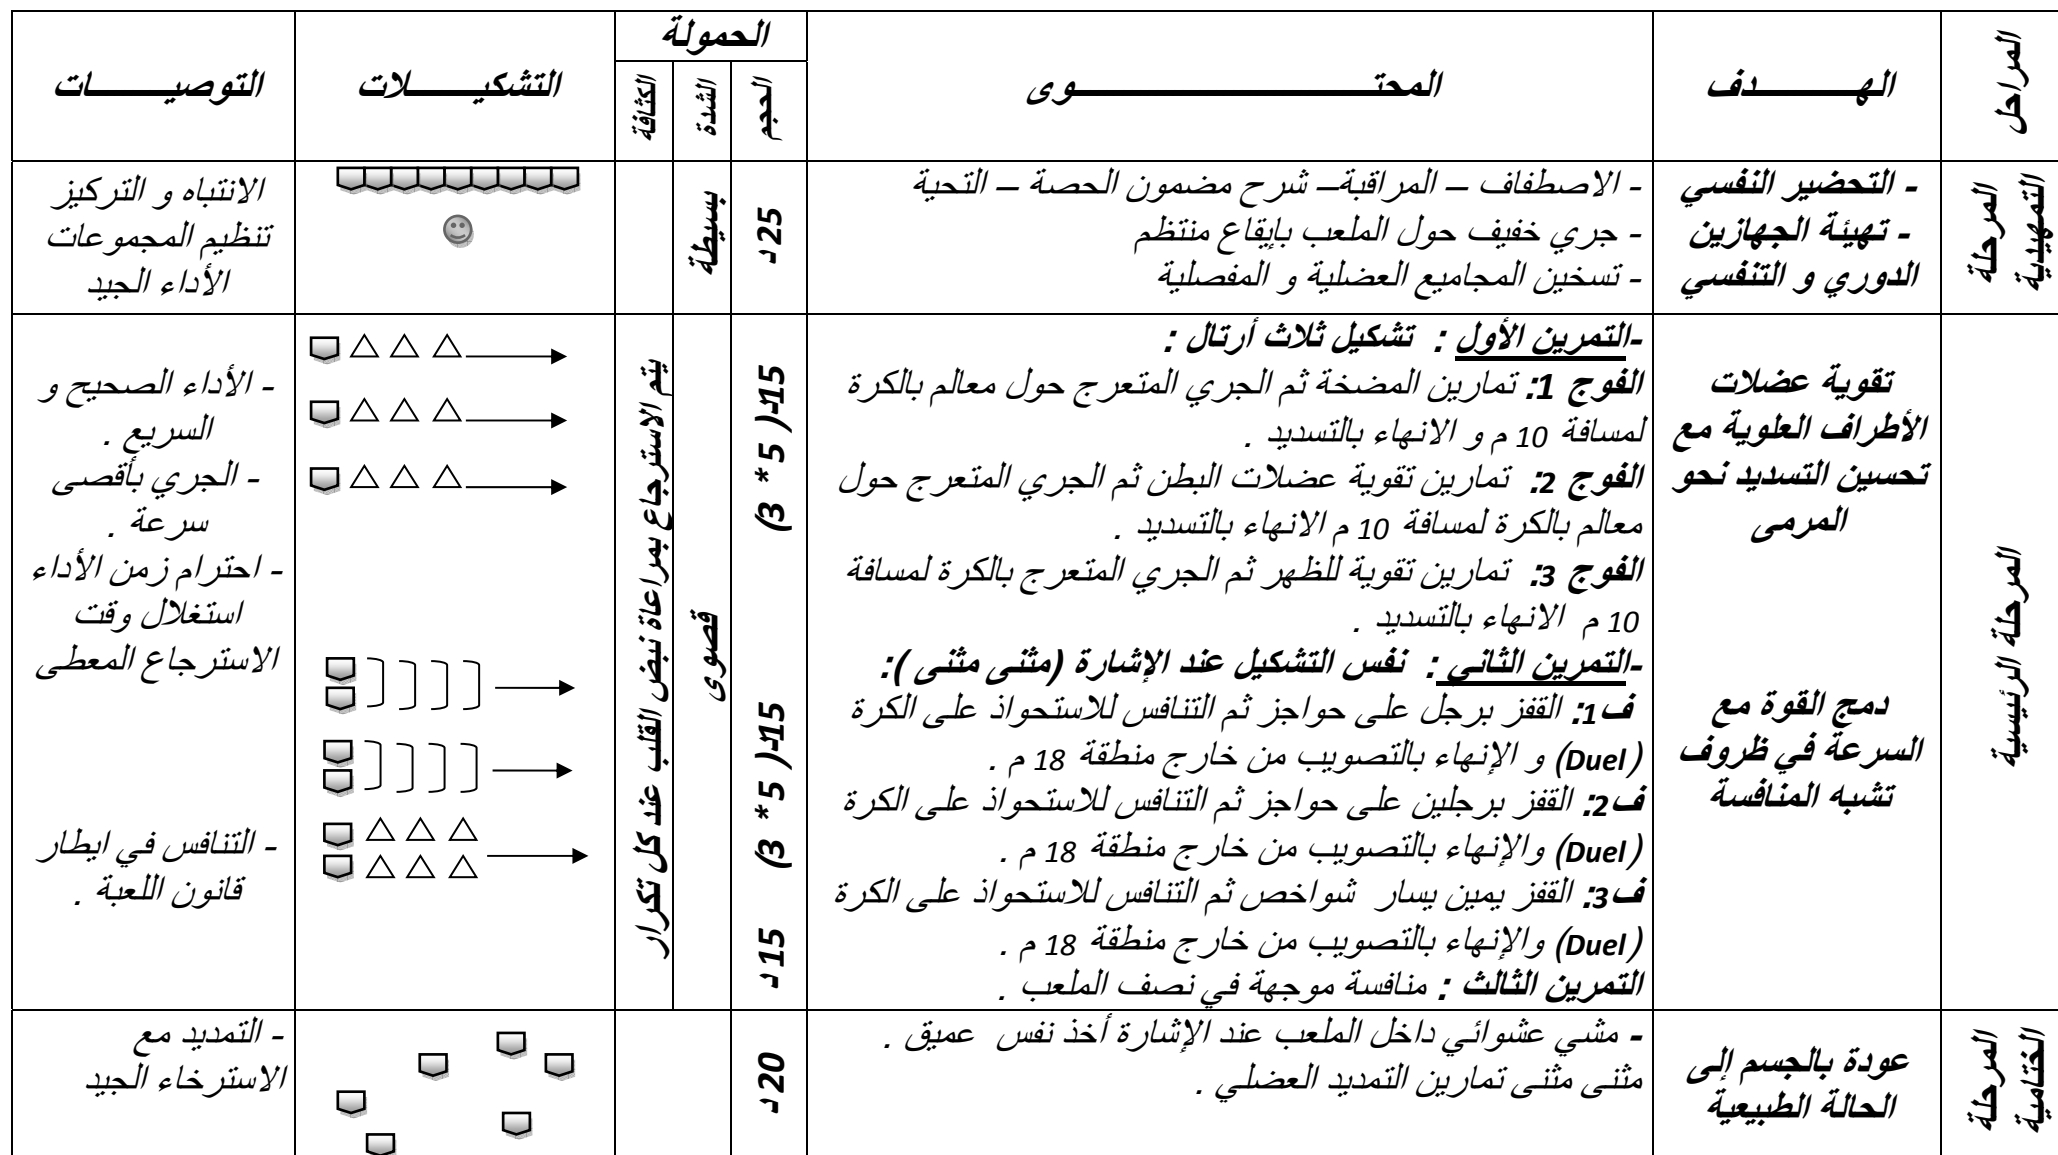 المراحل
الهـــــــدف
المحتــــــــــــــــــوى
الحمولة
الحجم
الشدة
الكثافة
التشكيـــــــلات
التوصيـــــــات
المرحلة
التمهيدية
- التحضير النفسي
- تهيئة الجهازين
الدوري و التنفسي
- الاصطفاف – المراقبة– شرح مضمون الحصة – التحية
- جري خفيف حول الملعب بإيقاع منتظم
- تسخين المجاميع العضلية و المفصلية
25 د
بسيطة
الانتباه و التركيز
تنظيم المجموعات
الأداء الجيد
المرحلة الرئيسية
تقوية عضلات
الأطراف العلوية مع
تحسين التسديد نحو
المرمى
دمج القوة مع
السرعة في ظروف
تشبه المنافسة
-التمرين الأول : تشكيل ثلاث أرتال :
الفوج 1: تمارين المضخة ثم الجري المتعرج حول معالم بالكرة
لمسافة 10 م و الانهاء بالتسديد .
الفوج 2: تمارين تقوية عضلات البطن ثم الجري المتعرج حول
معالم بالكرة لمسافة 10 م الانهاء بالتسديد .
الفوج 3: تمارين تقوية للظهر ثم الجري المتعرج بالكرة لمسافة
10 م الانهاء بالتسديد .
-التمرين الثاني : نفس التشكيل عند الإشارة (مثنى مثنى ):
ف1: القفز برجل على حواجز ثم التنافس للاستحواذ على الكرة
(Duel) و الإنهاء بالتصويب من خارج منطقة 18 م .
ف2: القفز برجلين على حواجز ثم التنافس للاستحواذ على الكرة
(Duel) والإنهاء بالتصويب من خارج منطقة 18 م .
ف3: القفز يمين يسار شواخص ثم التنافس للاستحواذ على الكرة
(Duel) والإنهاء بالتصويب من خارج منطقة 18 م .
التمرين الثالث : منافسة موجهة في نصف الملعب .
15د( 5 * 3)
15د( 5 * 3)
15 د
قصوى
يتم الاسترجاع بمراعاة نبض القلب عند كل تكرار
- الأداء الصحيح و
السريع .
- الجري بأقصى
سرعة .
- احترام زمن الأداء
استغلال وقت
الاسترجاع المعطى
- التنافس في ايطار
قانون اللعبة .
المرحلة
الختامية
عودة بالجسم إلى
الحالة الطبيعية
- مشي عشوائي داخل الملعب عند الإشارة أخذ نفس عميق .
مثنى مثنى تمارين التمديد العضلي .
20 د
- التمديد مع
الاسترخاء الجيد